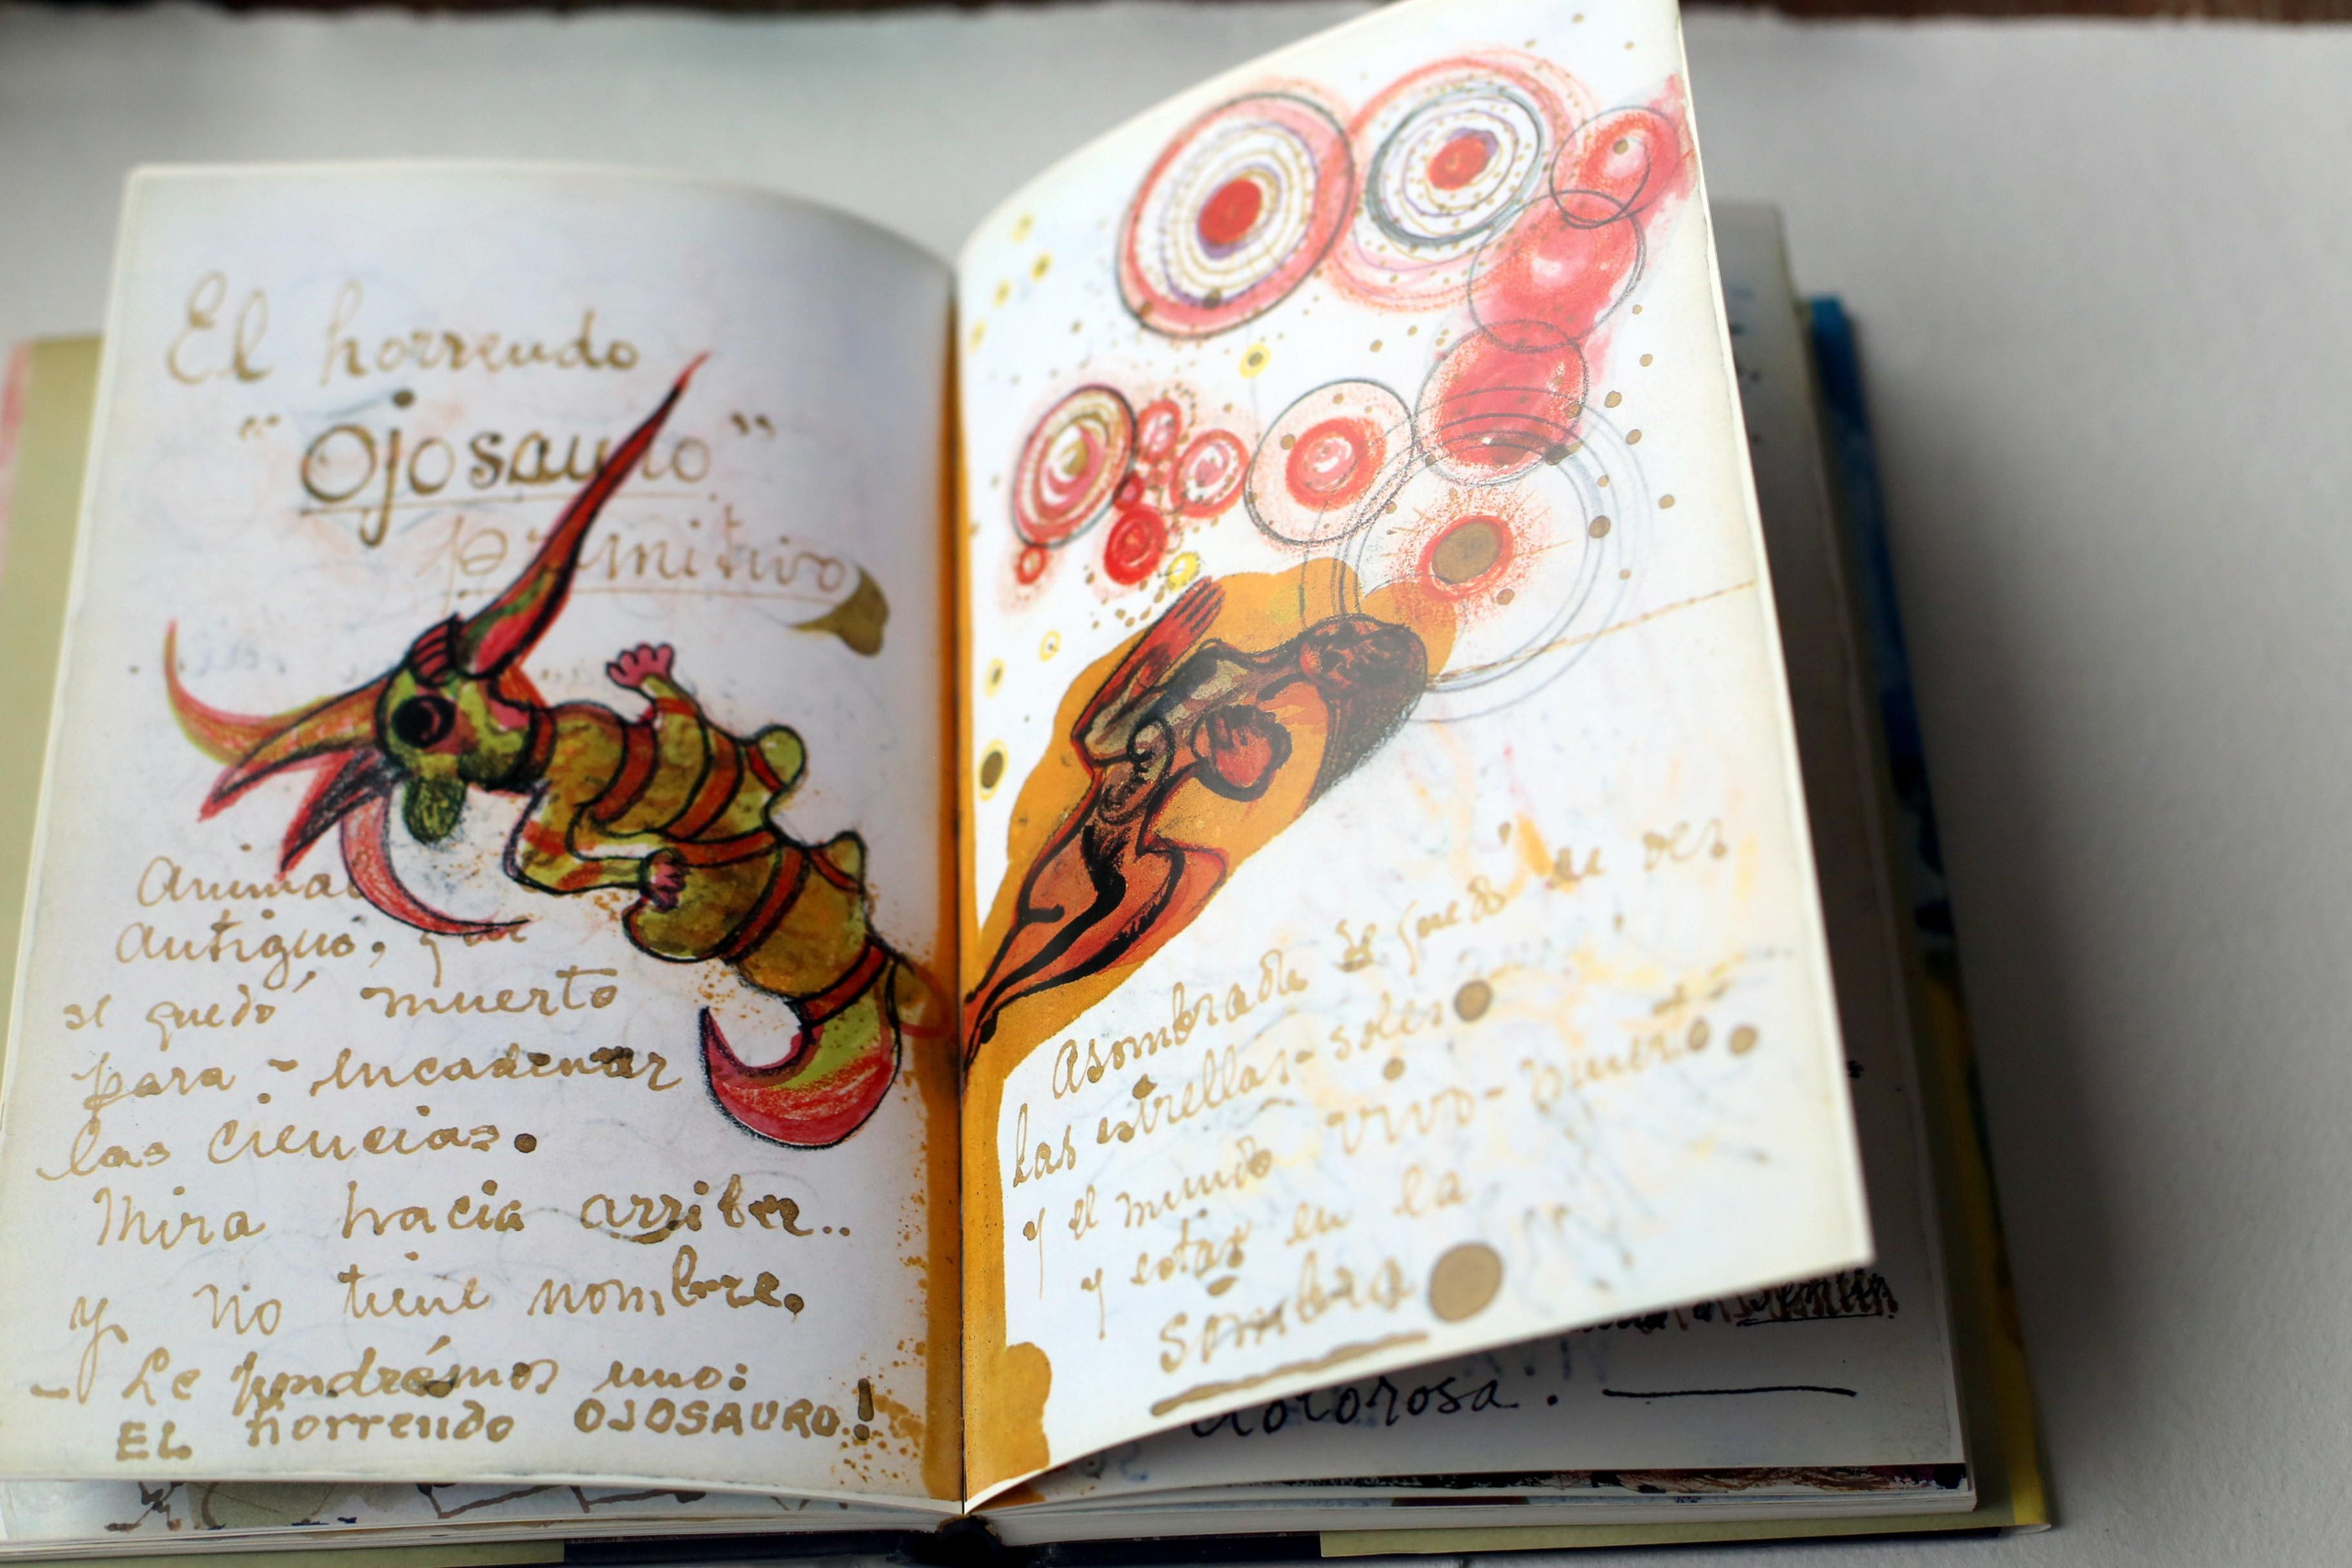 El horrendo
"Ojosauro"
primitivo
Animal
antiguo, que
se quedó muerto
para - encadenar
las ciencias.
Mira hacia arriba..
y no tiene nombre.
- Le pondrémos uno:
EL horrendo OJOSAURO!
Asombrada se quedó de ver
las estrellas-soles
y el mundo vivo-muerto
y estar en la
sombra
dolorosa.